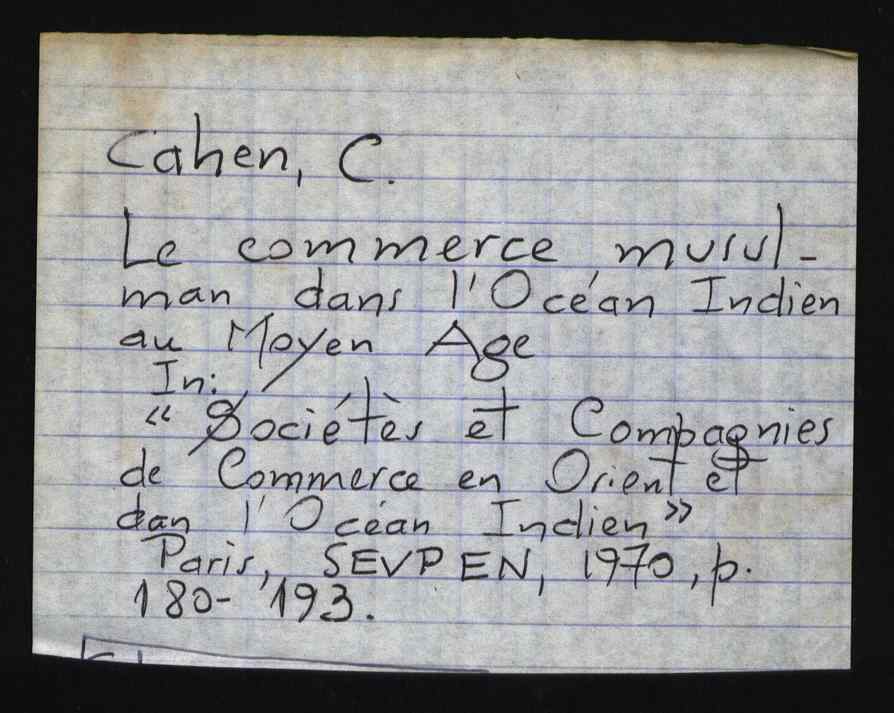 Cahen, C.
Le commerce musul-
man dans l'Océan Indien
au Moyen Age
In:
“ Sociétès et Compagnies
de Commerce en Orient et
dan l'Océan Indien”
Paris, SEVPEN, 1970, p.
180-193.